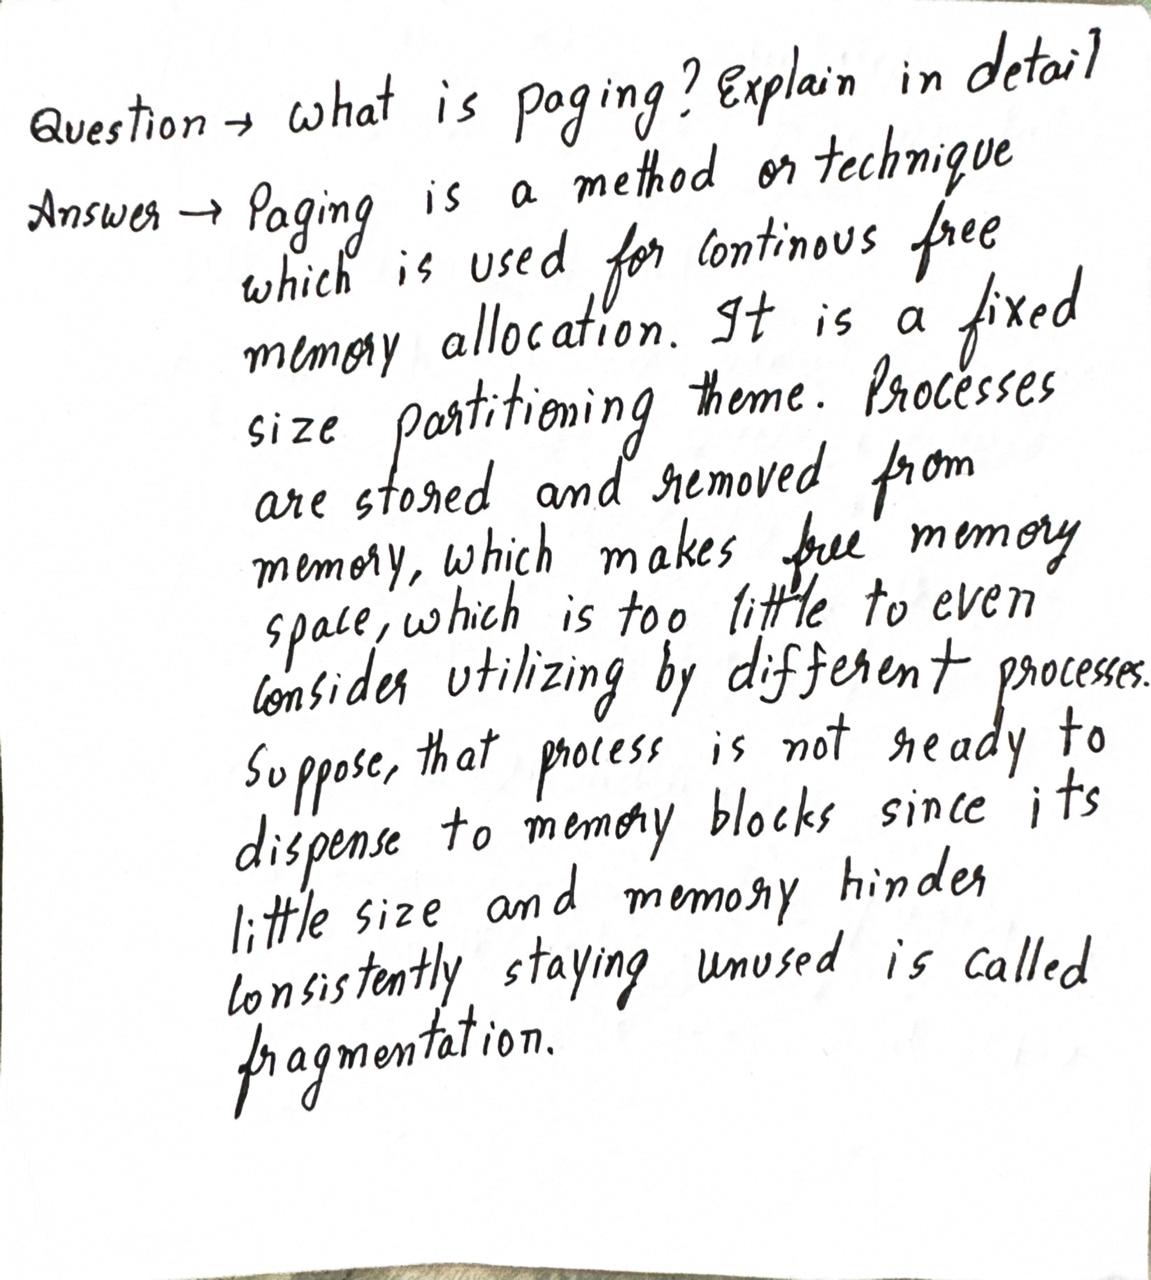 Question → what is paging? Explain in detail
Answer → Paging is a method or technique
which is used for continous free
memory allocation. It is a fixed
size partitioning theme. Processes
are stored and removed from
memory, which makes free memory
space, which is too little to even
consider utilizing by different processes.
Suppose, that process is not ready to
dispense to memory blocks since its
little size and memory hinder
consistently staying unused is called
fragmentation.